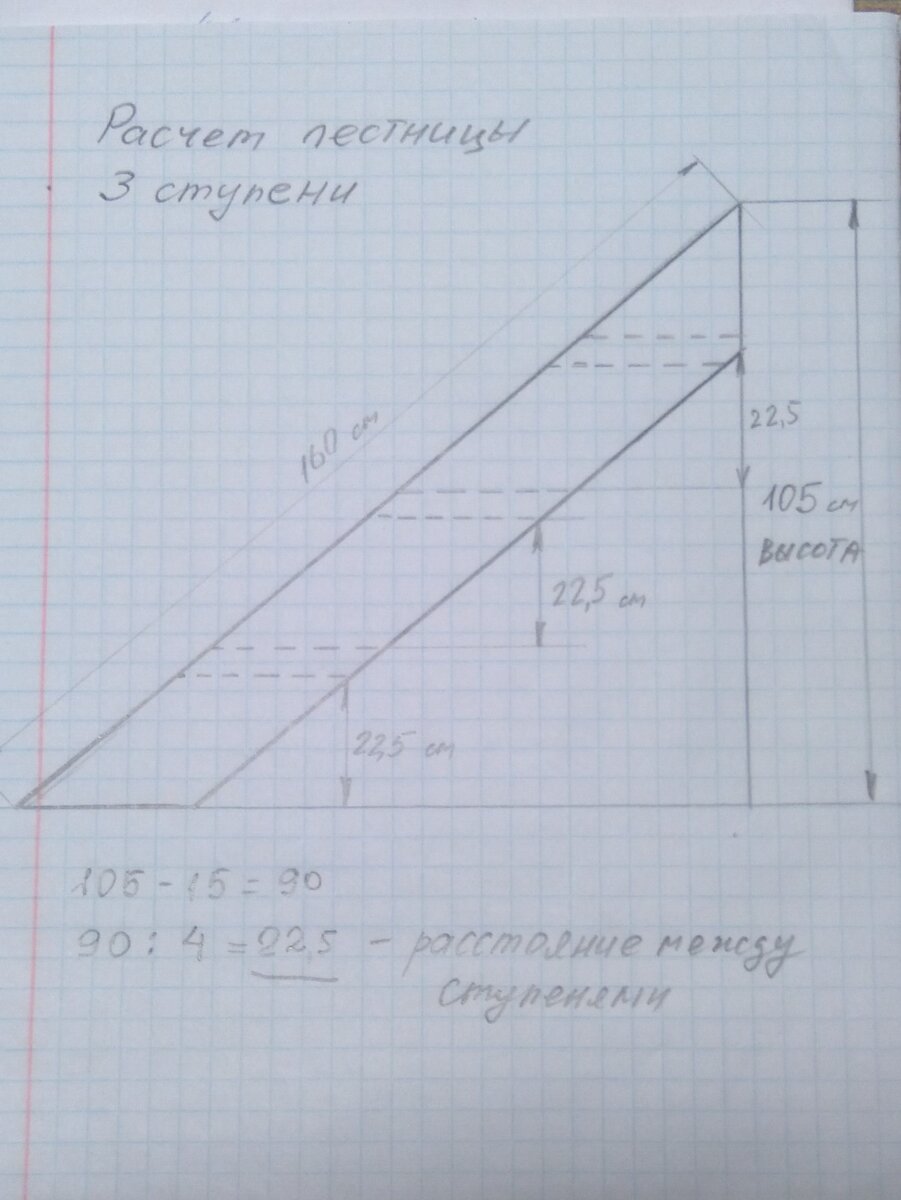 Расчет лестницы
3 ступени
160 см
22,5
105 см
высота
22,5 см
22,5 см
105 - 15 = 90
90 : 4 = 22,5 - расстояние между
ступенями